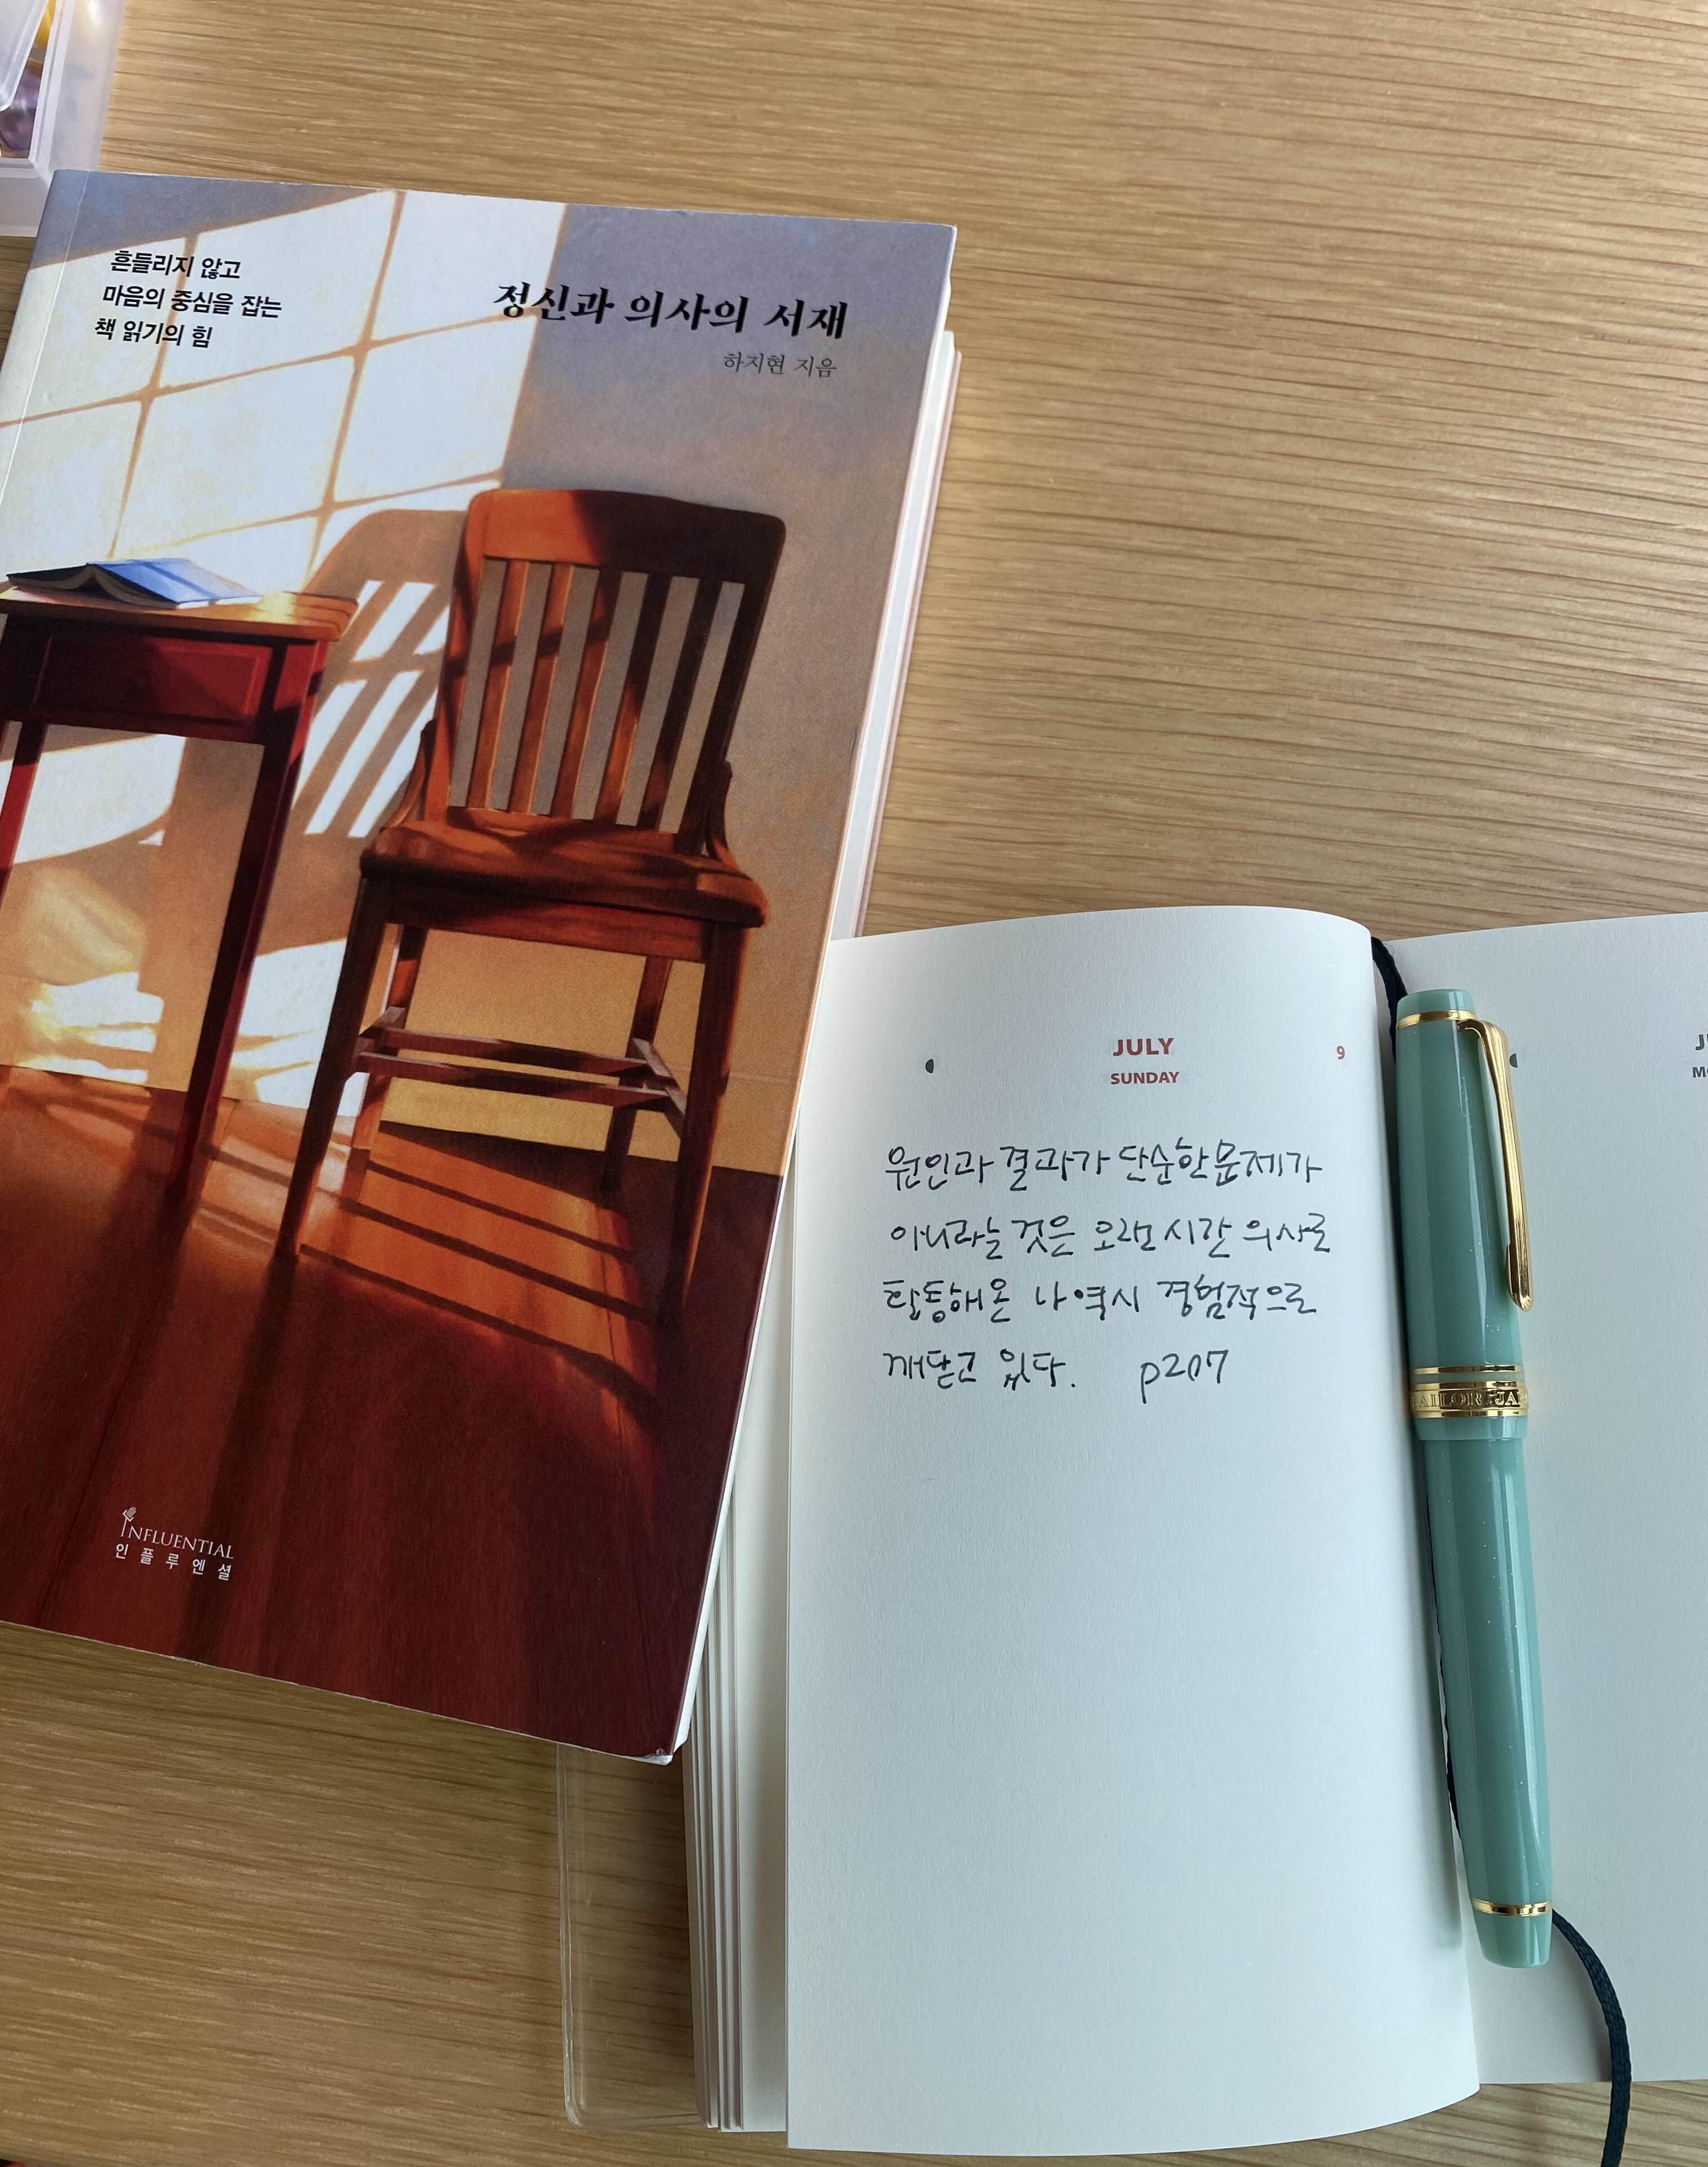 흔들리지 않고
마음의 중심을 잡는
책 읽기의 힘
정신과 의사의 서재
하지현 지음
INFLUENTIAL
인플루엔셜
JULY
9
SUNDAY
원인과 결과가 단순한 문제가
아니라는 것은 오랜 시간 의사로
활동해온 나 역시 경험적으로
깨닫고 있다. p207